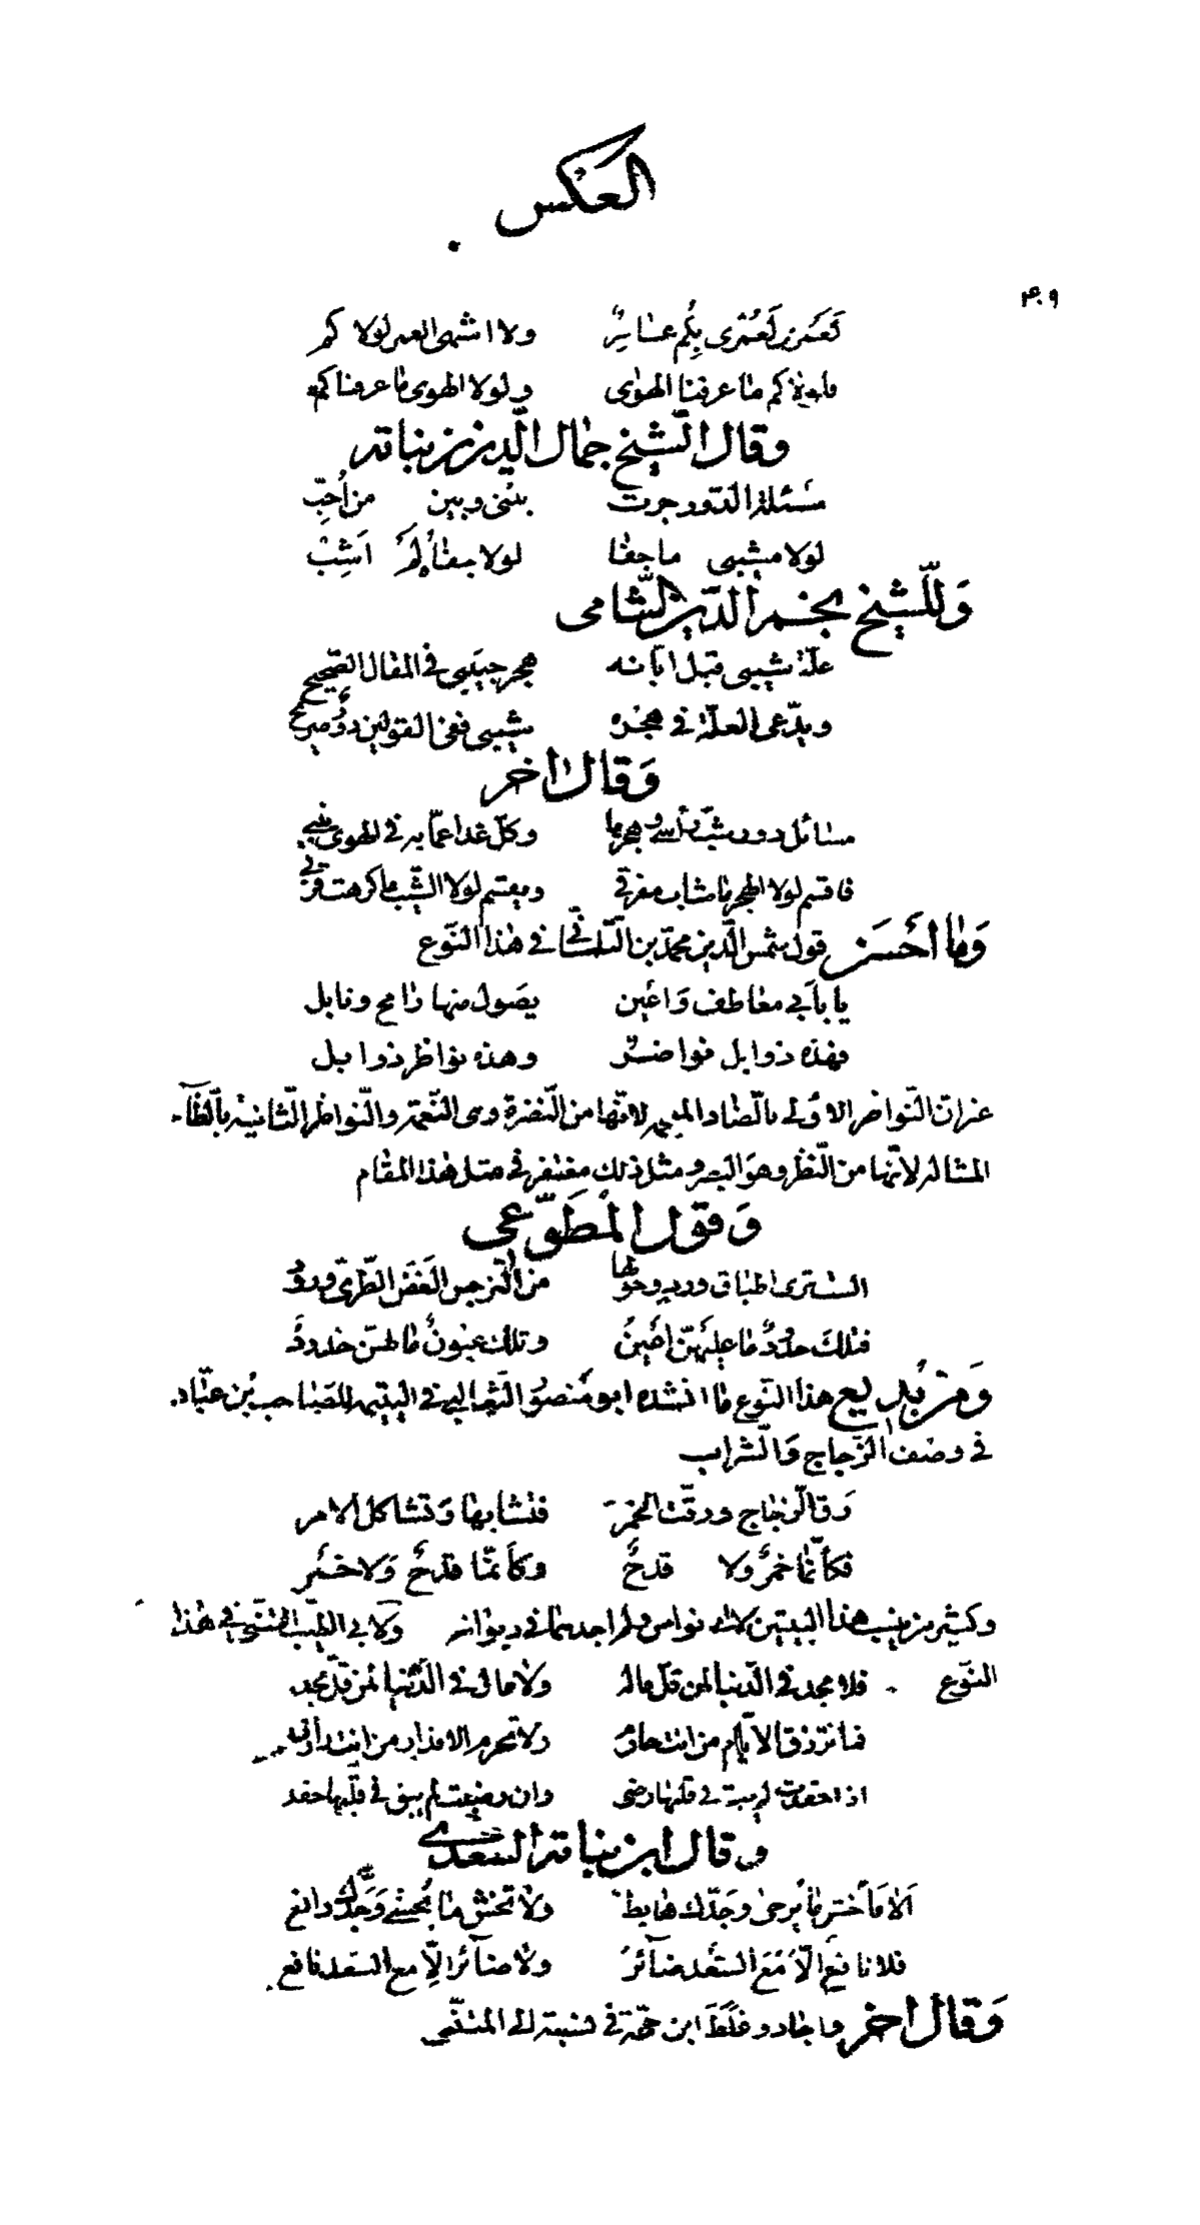 العَكْس
۴۰۹
لَعَمْرِى بِكُم عنائى ولا اشتهى العمر لولا كم
فلولاكم ما عرفنا الهوى ولولا الهوى ما عرفناكم
وقال الشّيخ جمال الدّين بن نباته
مسئلة الدّور جرت بينى وبين من أُحِبّ
لولا مشيبى ما جفا لولا جفاه لم اَشِبْ
وَللشّيخ نجم الدّين الشّامى
علّة شيبى قبل ابانه هجر حبيبى فى المقال الصّحيح
ويدّعى العلّة فى هجره شيبى ففى القولين دور صريح
وَقال اٰخر
مسائل دور شيب رأسى وهجرها وكلّ غدا عمّا به فى الهوى
فاقسم لولا الهجر ما شاب مفرقى ويقسم لولا الشّيب ما كرهت قربى
وَما أحسَن قول شمس الدّين محمّد بن التّلمسانى فى هذا النّوع
يا بأبى معاطف وَاعين يصول منها رامح ونابل
فهذه ذوابل نواضر وهذه نواظر ذوابل
غير انّ النّواضر الاولى بالضّاد المعجمه لانّها من النّضرة وهى النّعمة والنّواظر الثّانية بالظّآء
المشاله لانّها من النّظر وهو البصر ومثل ذلك مغتفر فى مثل هذا المقام
وَقول المُطَوّعى
الست ترى اطباق ورد وحولها من النّرجس الغَضّ الطّرىّ ورود
فتلكَ خدودٌ ما عليهنّ اعينُ وتلك عيونٌ ما لهنّ خدودُ
وَمن بُديع هذا النّوع ما انشده ابو مَنصور الثّعالبى فى اليتيمه للصّاحب بُن عبّاد
فى وصف الزّجاج وَالشّراب
رَقّ الزّجاج ورقّت الخمرُ فتشابها وَتشاكل الامر
فكأنّما خمرٌ ولا قدحٌ وكأنّما قدحٌ وَلا خمر
وكثير من ينسب هذا البيتين لابى نواس ولم اجدهما فى ديوانه وَلابى الطّيّب المتنبّى فى هذا
النّوع فلا مجد فى الدّنيا لمن قلّ ماله ولا مال فى الدّنيا لمن قلّ مجده
فما ترزق الايّام من انت حارم ولا تحرم الاقدار من انت
اذا حقدت لم يبق فى قلبها رضى وان رضيت لم يبق فى قلبها حقد
وقال ابن نباته السّعدى
اَلا فَاخشَ ما يُرجى وجَدّك هابط ولا تخش ما يُخشى وَجَدّك رافع
فلا نافع الاّ مَعَ النّحس ضآئرُ ولا ضآئر الاّ مع السّعد نافع
وَقال اٰخر واجاد وغلّط ابن حجّة فى نسبته الى المتنبّى